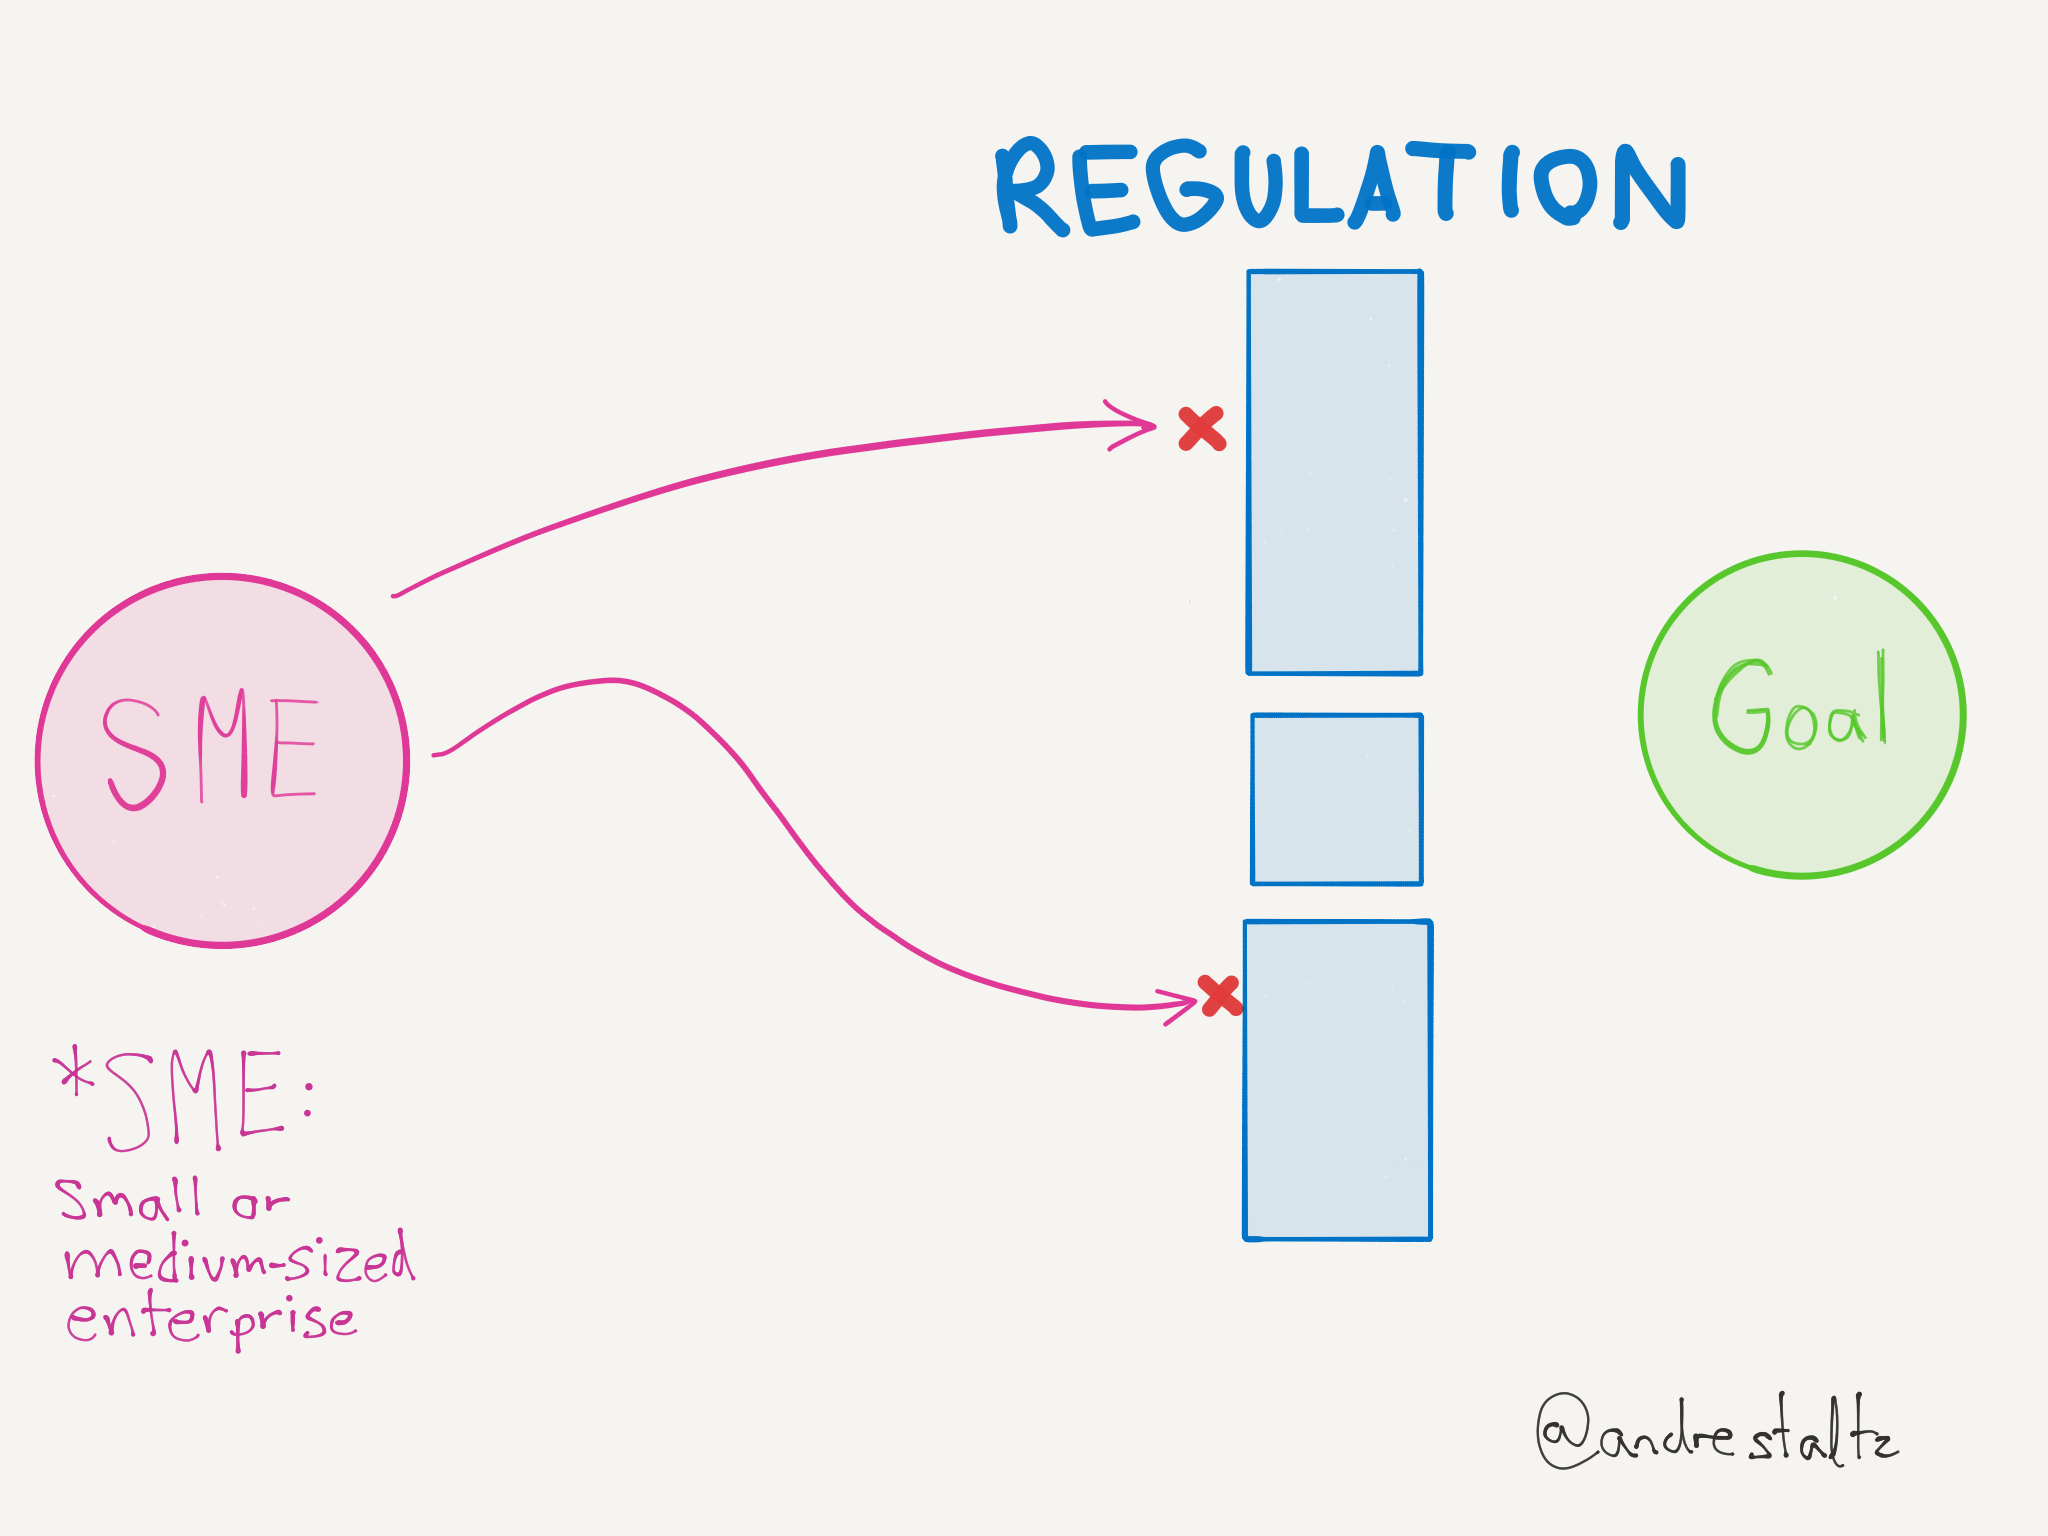 REGULATION
SME
Goal
*SME:
Small or
medium-sized
enterprise
@andrestaltz